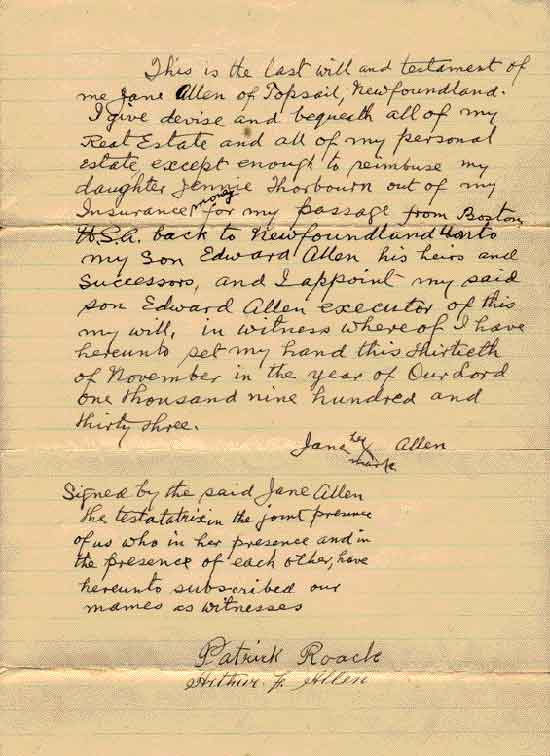 This is the last will and testament of
me Jane Allen of Topsail, Newfoundland.
I give devise and bequeath all of my
Real Estate and all of my personal
estate, except enough to reimbuse my
daughter Jennie Thorbourn out of my
Insurance money for my passage from Boston,
U.S.A. back to Newfoundland unto
my Son Edward Allen his heirs and
Successors, and I appoint my said
son Edward Allen executor of this
my will, in witness where of I have
hereunto set my hand this thirtieth
of November in the year of Our Lord
one thousand nine hundred and
thirty three.
Jane her X mark Allen
Signed by the said Jane Allen
the testatatrix in the joint presence
of us who in her presence and in
the presence of each other, have
hereunto subscribed our
names as witnesses
Patrick Roach
Arthur. J. Allen